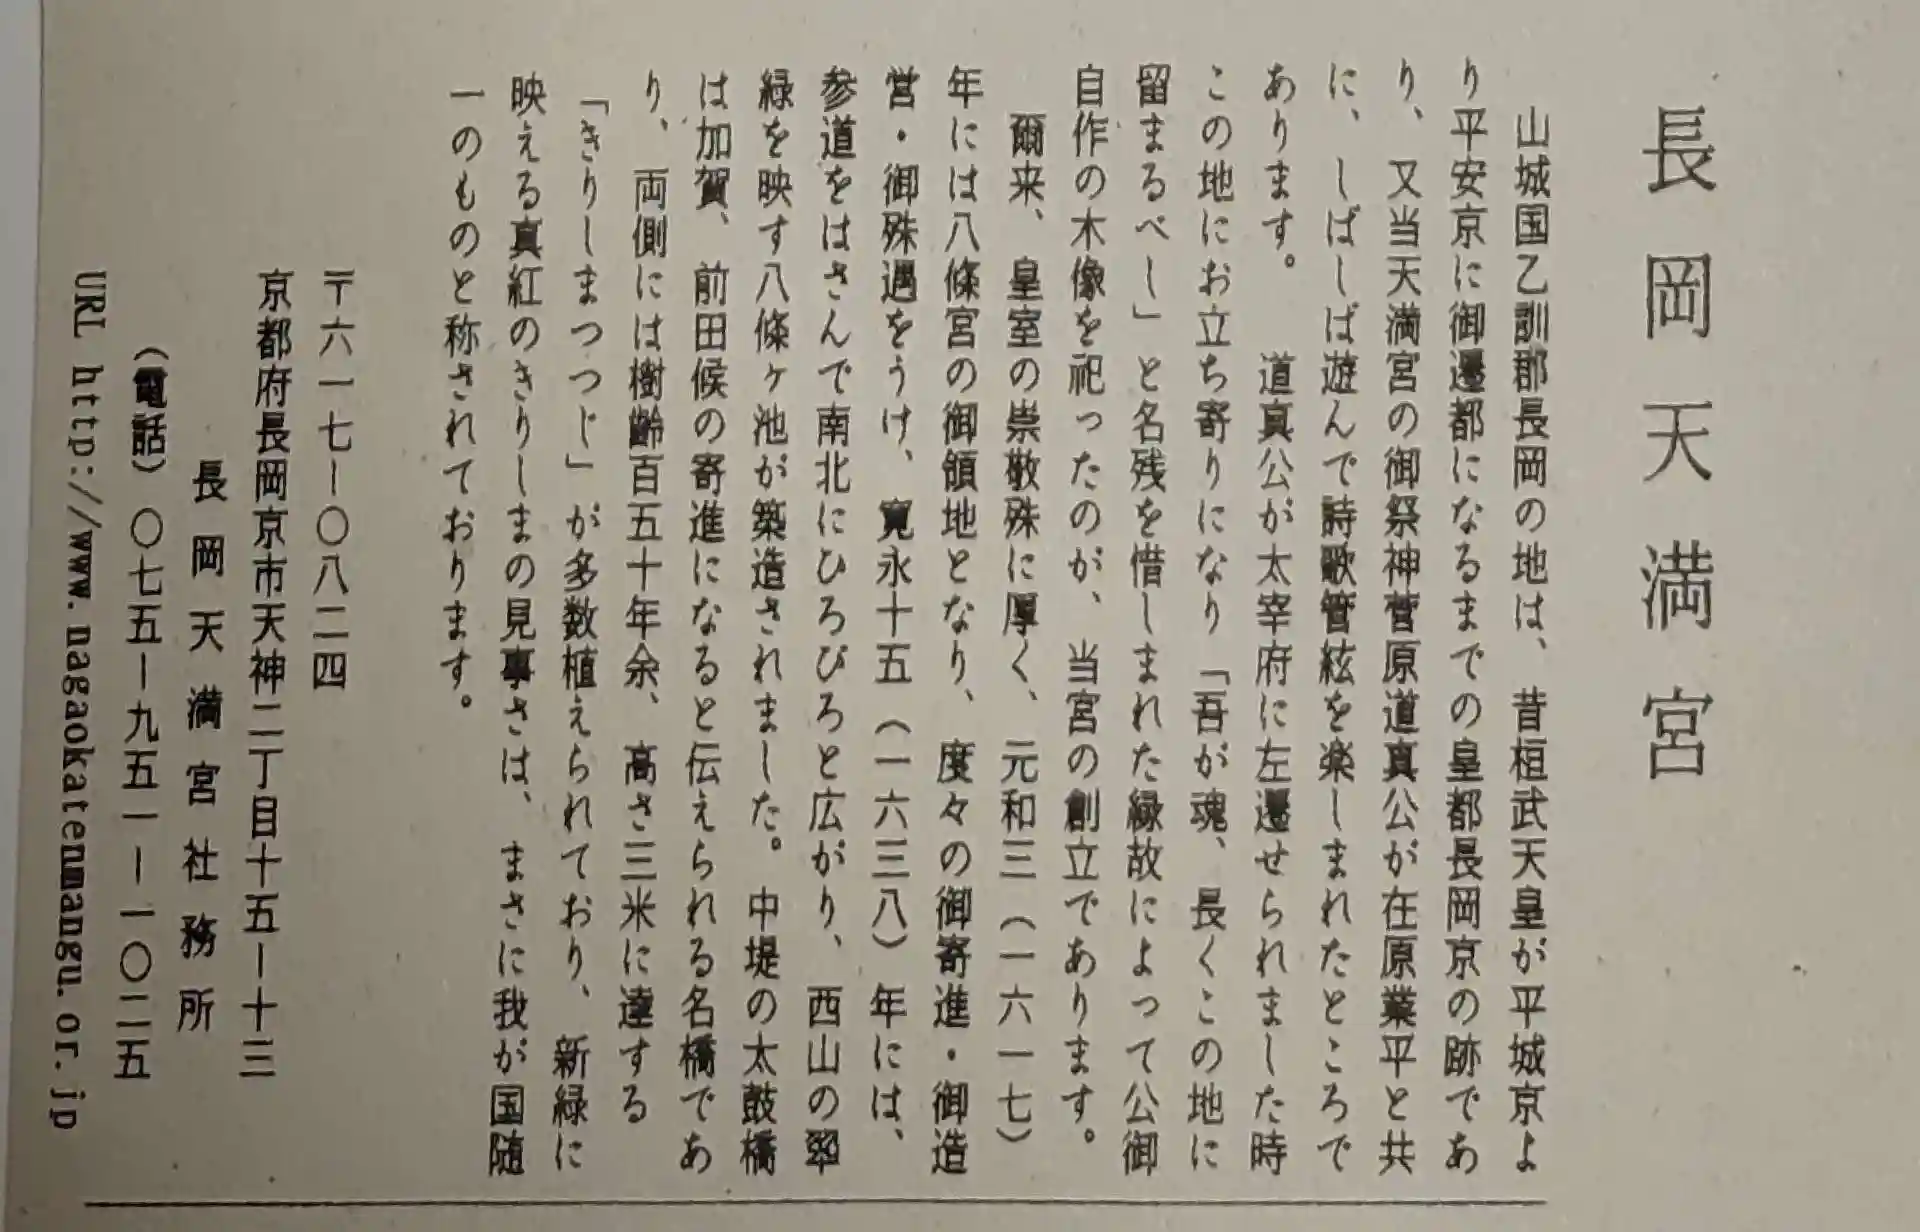 長岡天満宮
山城国乙訓郡長岡の地は、昔桓武天皇が平城京よ
り平安京に御遷都になるまでの皇都長岡京の跡であ
り、又当天満宮の御祭神菅原道真公が在原業平と共
に、しばしば遊んで詩歌管絃を楽しまれたところで
あります。　道真公が太宰府に左遷せられました時
この地にお立ち寄りになり「吾が魂、長くこの地に
留まるべし」と名残を惜しまれた縁故によって公御
自作の木像を祀ったのが、当宮の創立であります。
爾来、皇室の崇敬殊に厚く、元和三（一六一七）
年には八條宮の御領地となり、度々の御寄進・御造
営・御殊遇をうけ、寛永十五（一六三八）年には、
参道をはさんで南北にひろびろと広がり、西山の翠
緑を映す八條ヶ池が築造されました。中堤の太鼓橋
は加賀、前田候の寄進になると伝えられる名橋であ
り、両側には樹齢百五十年余、高さ三米に達する
「きりしまつつじ」が多数植えられており、新緑に
映える真紅のきりしまの見事さは、まさに我が国随
一のものと称されております。
〒六一七－〇八二四
京都府長岡京市天神二丁目十五－十三
長岡天満宮社務所
（電話）〇七五－九五一－一〇二五
URL http://www.nagaokatenmangu.or.jp